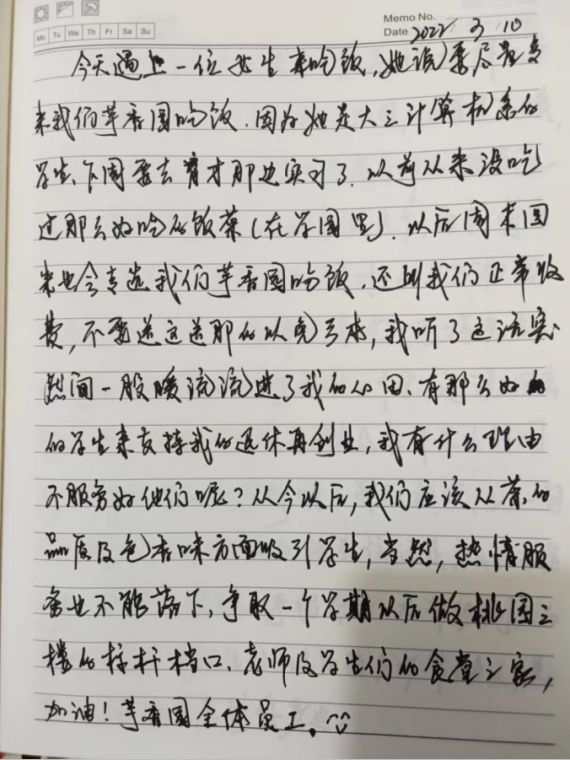 Memo No.
Mo Tu We Th Fr Sa Su
Date 2022 3 10
今天遇上一位女生来吃饭,她说要尽量多
来我们芋香园吃饭.因为她是大三计算机系的
学生、下周要去育才那边实习了.以前从来没吃
过那么好吃的饭菜(在学园里).以后周末回
来也会专选我们芋香园吃饭.还叫我们正常收
费,不要送这送那的以免亏本,我听了这话突
然间一股暖流流进了我的心田、有那么好
的学生来支持我的退休再创业,我有什么理由
不服务好他们呢?从今以后,我们应该从菜的
品质及色香味方面吸引学生,当然,热情服
务也不能落下,争取一个学期以后做桃园三
楼的标杆档口、老师及学生们的食堂之家,
加油!芋香园全体员工。